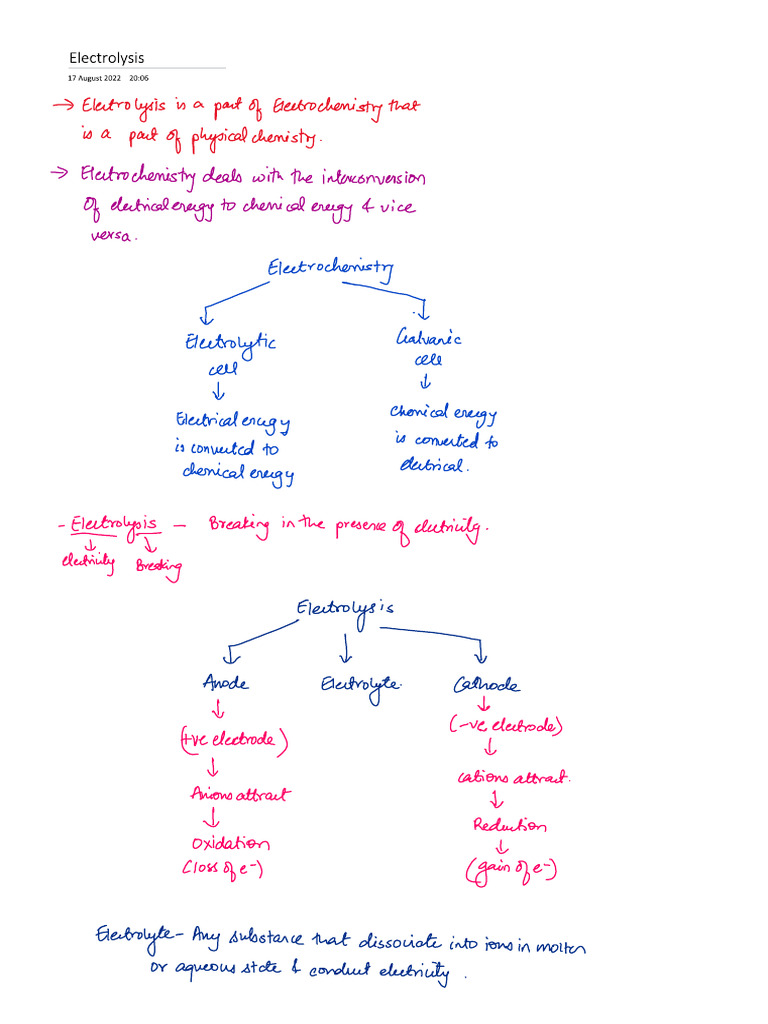 Electrolysis
17 August 2022 20:06
→ Electrolysis is a part of Electrochemistry that
is a part of physical chemistry.
→ Electrochemistry deals with the interconversion
of electrical energy to chemical energy & vice
versa.
Electrochemistry
Electrolytic
cell
↓
Electrical energy
is converted to
chemical energy
Galvanic
cell
↓
Chemical energy
is converted to
electrical.
- Electrolysis - Breaking in the presence of electricity.
↓ ↓
electricity Breaking
Electrolysis
Anode Electrolyte. Cathode
↓
(+ve electrode)
↓
Anions attract
↓
Oxidation
(loss of e-)
↓
(-ve electrode)
↓
cations attract.
↓
Reduction
↓
(gain of e-)
Electrolyte - Any substance that dissociate into ions in molten
or aqueous state & conduct electricity.